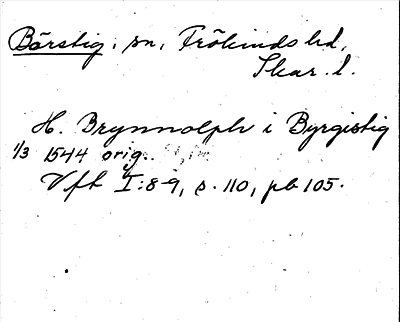 Börstig, sn, Frökinds hd,
Skar. l.
H. Brynnolph i Byrgistig
1/3 1544 orig.
Vft I:8-9, s. 110, pb 105.